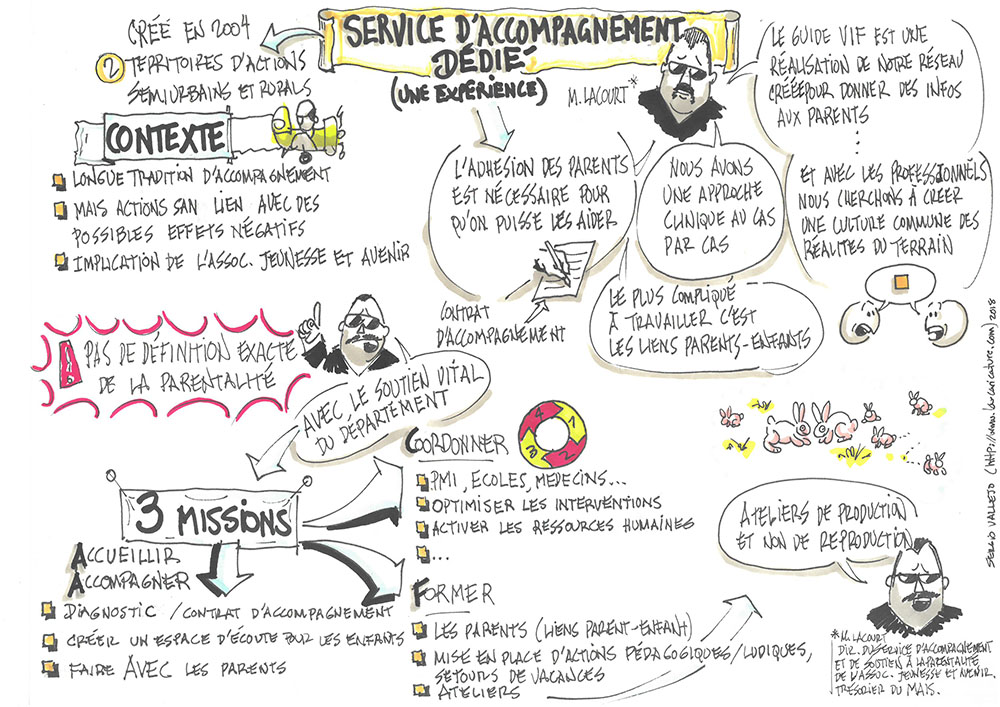 CRÉÉ EN 2004
2 TERRITOIRES D'ACTIONS
SEMIURBAINS ET RURALS
SERVICE D'ACCOMPAGNEMENT
DÉDIÉ
(UNE EXPÉRIENCE)
M. LACOURT*
CONTEXTE
LONGUE TRADITION D'ACCOMPAGNEMENT
MAIS ACTIONS SAN LIEN AVEC DES
POSSIBLES EFFETS NÉGATIFS
IMPLICATION DE L'ASSOC. JEUNESSE ET AVENIR
L'ADHÉSION DES PARENTS
EST NÉCESSAIRE POUR
QU'ON PUISSE LES AIDER
CONTRAT
D'ACCOMPAGNEMENT
NOUS AVONS
UNE APPROCHE
CLINIQUE AU CAS
PAR CAS
LE PLUS COMPLIQUÉ
À TRAVAILLER C'EST
LES LIENS PARENTS-ENFANTS
LE GUIDE VIF EST UNE
RÉALISATION DE NOTRE RÉSEAU
CRÉÉE POUR DONNER DES INFOS
AUX PARENTS
ET AVEC LES PROFESSIONNELS
NOUS CHERCHONS À CRÉER
UNE CULTURE COMMUNE DES
RÉALITÉS DU TERRAIN
! PAS DE DÉFINITION EXACTE
DE LA PARENTALITÉ
AVEC LE SOUTIEN VITAL
DU DÉPARTEMENT
3 MISSIONS
ACCUEILLIR
ACCOMPAGNER
DIAGNOSTIC / CONTRAT D'ACCOMPAGNEMENT
CRÉER UN ESPACE D'ÉCOUTE POUR LES ENFANTS
FAIRE AVEC LES PARENTS
COORDONNER
4 1
3 2
PMI, ECOLES, MEDECINS...
OPTIMISER LES INTERVENTIONS
ACTIVER LES RESSOURCES HUMAINES
...
FORMER
LES PARENTS (LIENS PARENT-ENFANT)
MISE EN PLACE D'ACTIONS PÉDAGOGIQUES/LUDIQUES,
SEJOURS DE VACANCES
ATELIERS
ATELIERS DE PRODUCTION
ET NON DE REPRODUCTION
* M. LACOURT
DIR. DU SERVICE D'ACCOMPAGNEMENT
ET DE SOUTIEN À LA PARENTALITÉ
DE L'ASSOC. JEUNESSE ET AVENIR.
TRÉSORIER DU MAIS.
SERGIO VALLEJO (http://www.lavcaricature.com) 2018